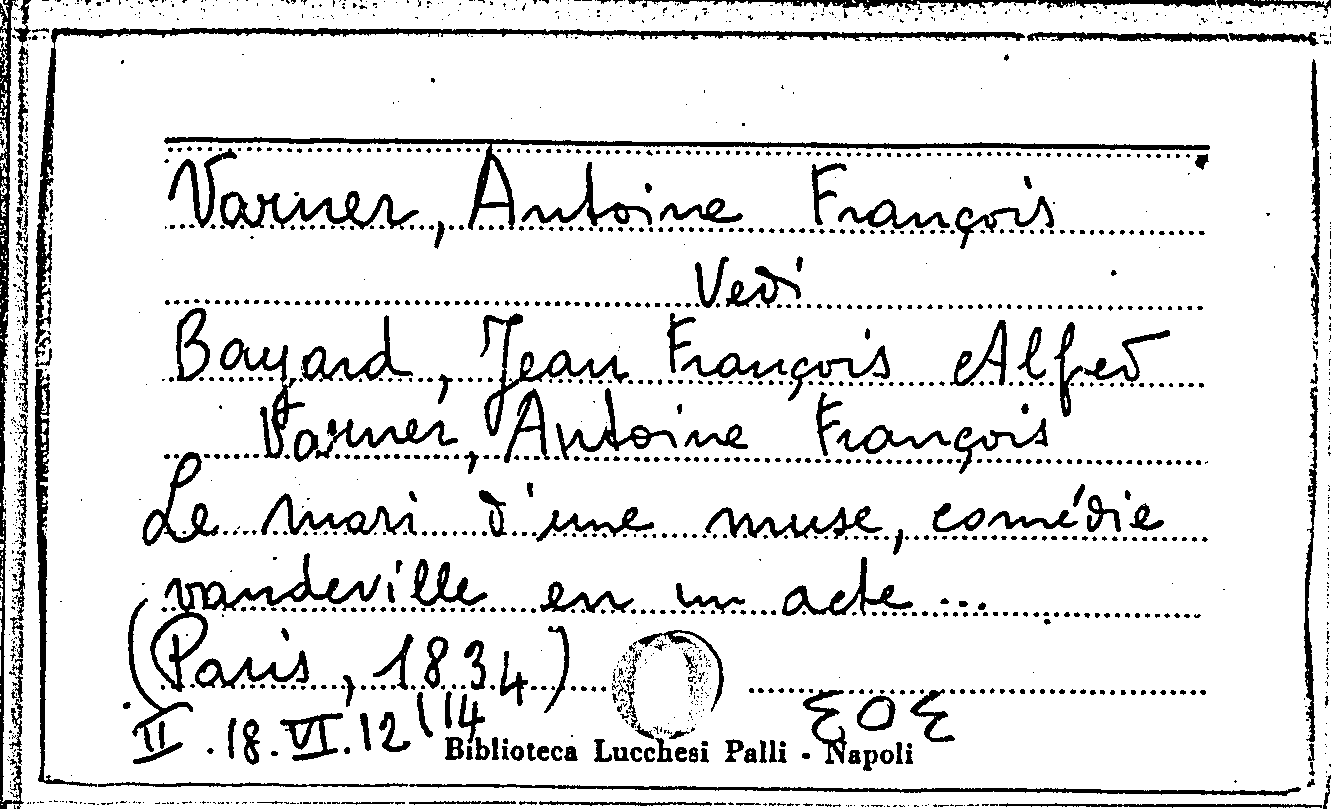 Varner, Antoine François
Vedi
Bayard, Jean François Alfred
Varner, Antoine François
Le mari d'une muse, comédie
vaudeville en un acte...
(Paris, 1834)
II.18.VI.12
Biblioteca Lucchesi Palli - Napoli